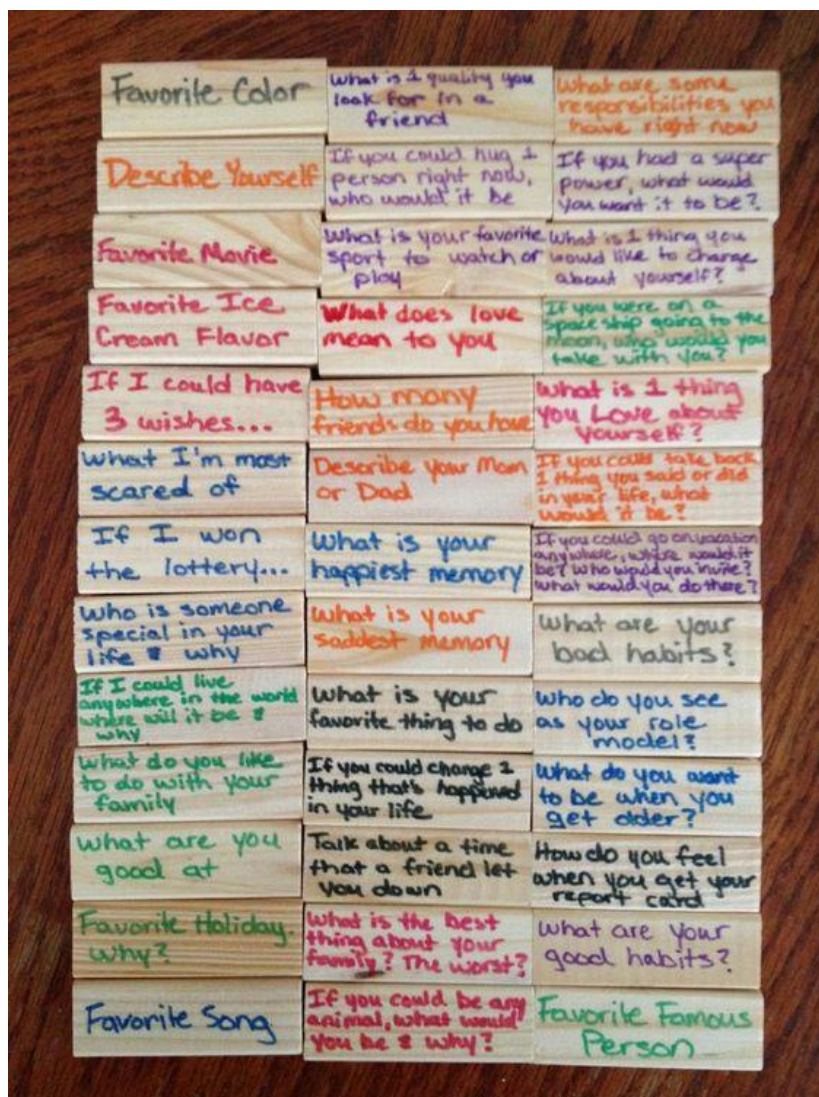 Favorite Color
Describe Yourself
Favorite Movie
Favorite Ice
Cream Flavor
If I could have
3 wishes...
What I'm most
scared of
If I won
the lottery...
Who is someone
special in your
life & why
If I could live
anywhere in the world
where will it be &
why
What do you like
to do with your
family
What are you
good at
Favorite Holiday.
Why?
Favorite Song
What is 1 quality you
look for in a
friend
If you could hug 1
person right now,
who would it be
What is your favorite
sport to watch or
play
What does love
mean to you
How many
friends do you have
Describe your Mom
or Dad
What is your
happiest memory
What is your
saddest memory
What is your
favorite thing to do
If you could change 1
thing that's happened
in your life
Talk about a time
that a friend let
you down
What is the best
thing about your
family? The worst?
If you could be any
animal, what would
you be & why?
What are some
responsibilities you
have right now
If you had a super
power, what would
you want it to be?
What is 1 thing you
would like to change
about yourself?
If you were on a
space ship going to the
moon, who would you
take with you?
What is 1 thing
you Love about
yourself?
If you could take back
1 thing you said or did
in your life, what
would it be?
If you could go on vacation
anywhere, where would it
be? Who would you invite?
What would you do there?
What are your
bad habits?
Who do you see
as your role
model?
What do you want
to be when you
get older?
How do you feel
when you get your
report card
What are your
good habits?
Favorite Famous
Person